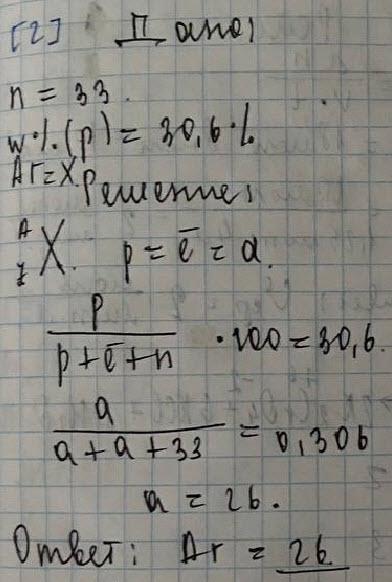 [2] Дано:
n = 33.
w%(p) = 30,6%
Ar = X.
Решение:
A
Z X. p = ē = a.
p
p + ē + n · 100 = 30,6.
a
a + a + 33 = 0,306
a = 26.
Ответ: Ar = 26